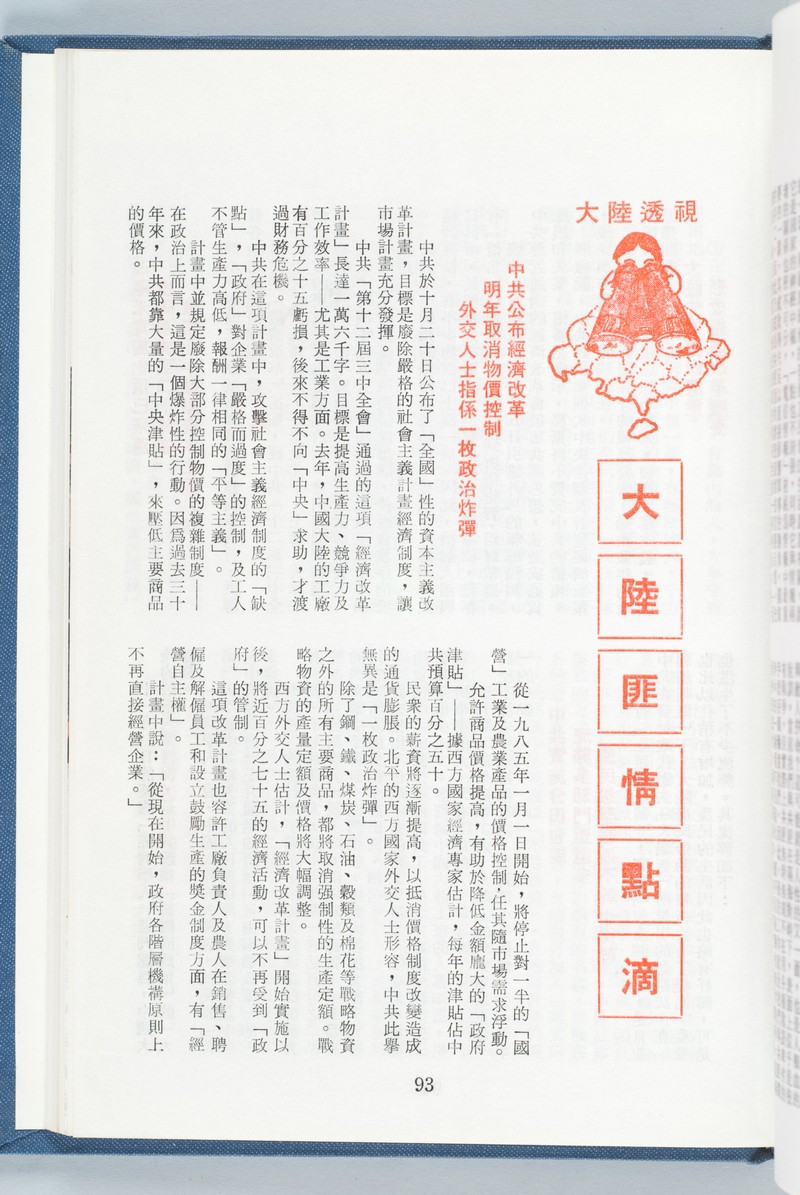 大陸透視
大陸匪情點滴
中共公布經濟改革
明年取消物價控制
外交人士指係一枚政治炸彈
中共於十月二十日公布了「全國」性的資本主義改
革計畫，目標是廢除嚴格的社會主義計畫經濟制度，讓
市場計畫充分發揮。
中共「第十二屆三中全會」通過的這項「經濟改革
計畫」長達一萬六千字。目標是提高生產力、競爭力及
工作效率——尤其是工業方面。去年，中國大陸的工廠
有百分之十五虧損，後來不得不向「中央」求助，才渡
過財務危機。
中共在這項計畫中，攻擊社會主義經濟制度的「缺
點」，「政府」對企業「嚴格而過度」的控制，及工人
不管生產力高低，報酬一律相同的「平等主義」。
計畫中並規定廢除大部分控制物價的複雜制度——
在政治上而言，這是一個爆炸性的行動。因爲過去三十
年來，中共都靠大量的「中央津貼」，來壓低主要商品
的價格。
從一九八五年一月一日開始，將停止對一半的「國
營」工業及農業產品的價格控制，任其隨市場需求浮動。
允許商品價格提高，有助於降低金額龐大的「政府
津貼」——據西方國家經濟專家估計，每年的津貼佔中
共預算百分之五十。
民衆的薪資將逐漸提高，以抵消價格制度改變造成
的通貨膨脹。北平的西方國家外交人士形容，中共此舉
無異是「一枚政治炸彈」。
除了鋼、鐵、煤炭、石油、穀類及棉花等戰略物資
之外的所有主要商品，都將取消强制性的生產定額。戰
略物資的產量定額及價格將大幅調整。
西方外交人士估計，「經濟改革計畫」開始實施以
後，將近百分之七十五的經濟活動，可以不再受到「政
府」的管制。
這項改革計畫也容許工廠負責人及農人在銷售、聘
僱及解僱員工和設立鼓勵生產的獎金制度方面，有「經
營自主權」。
計畫中說：「從現在開始，政府各階層機構原則上
不再直接經營企業。」
93